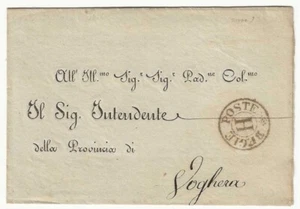 All' Ill.mo Sig.r Sig.r Pad.ne Col.mo
Il Sig. Intendente
della Provincia di
Voghera
POSTE
H